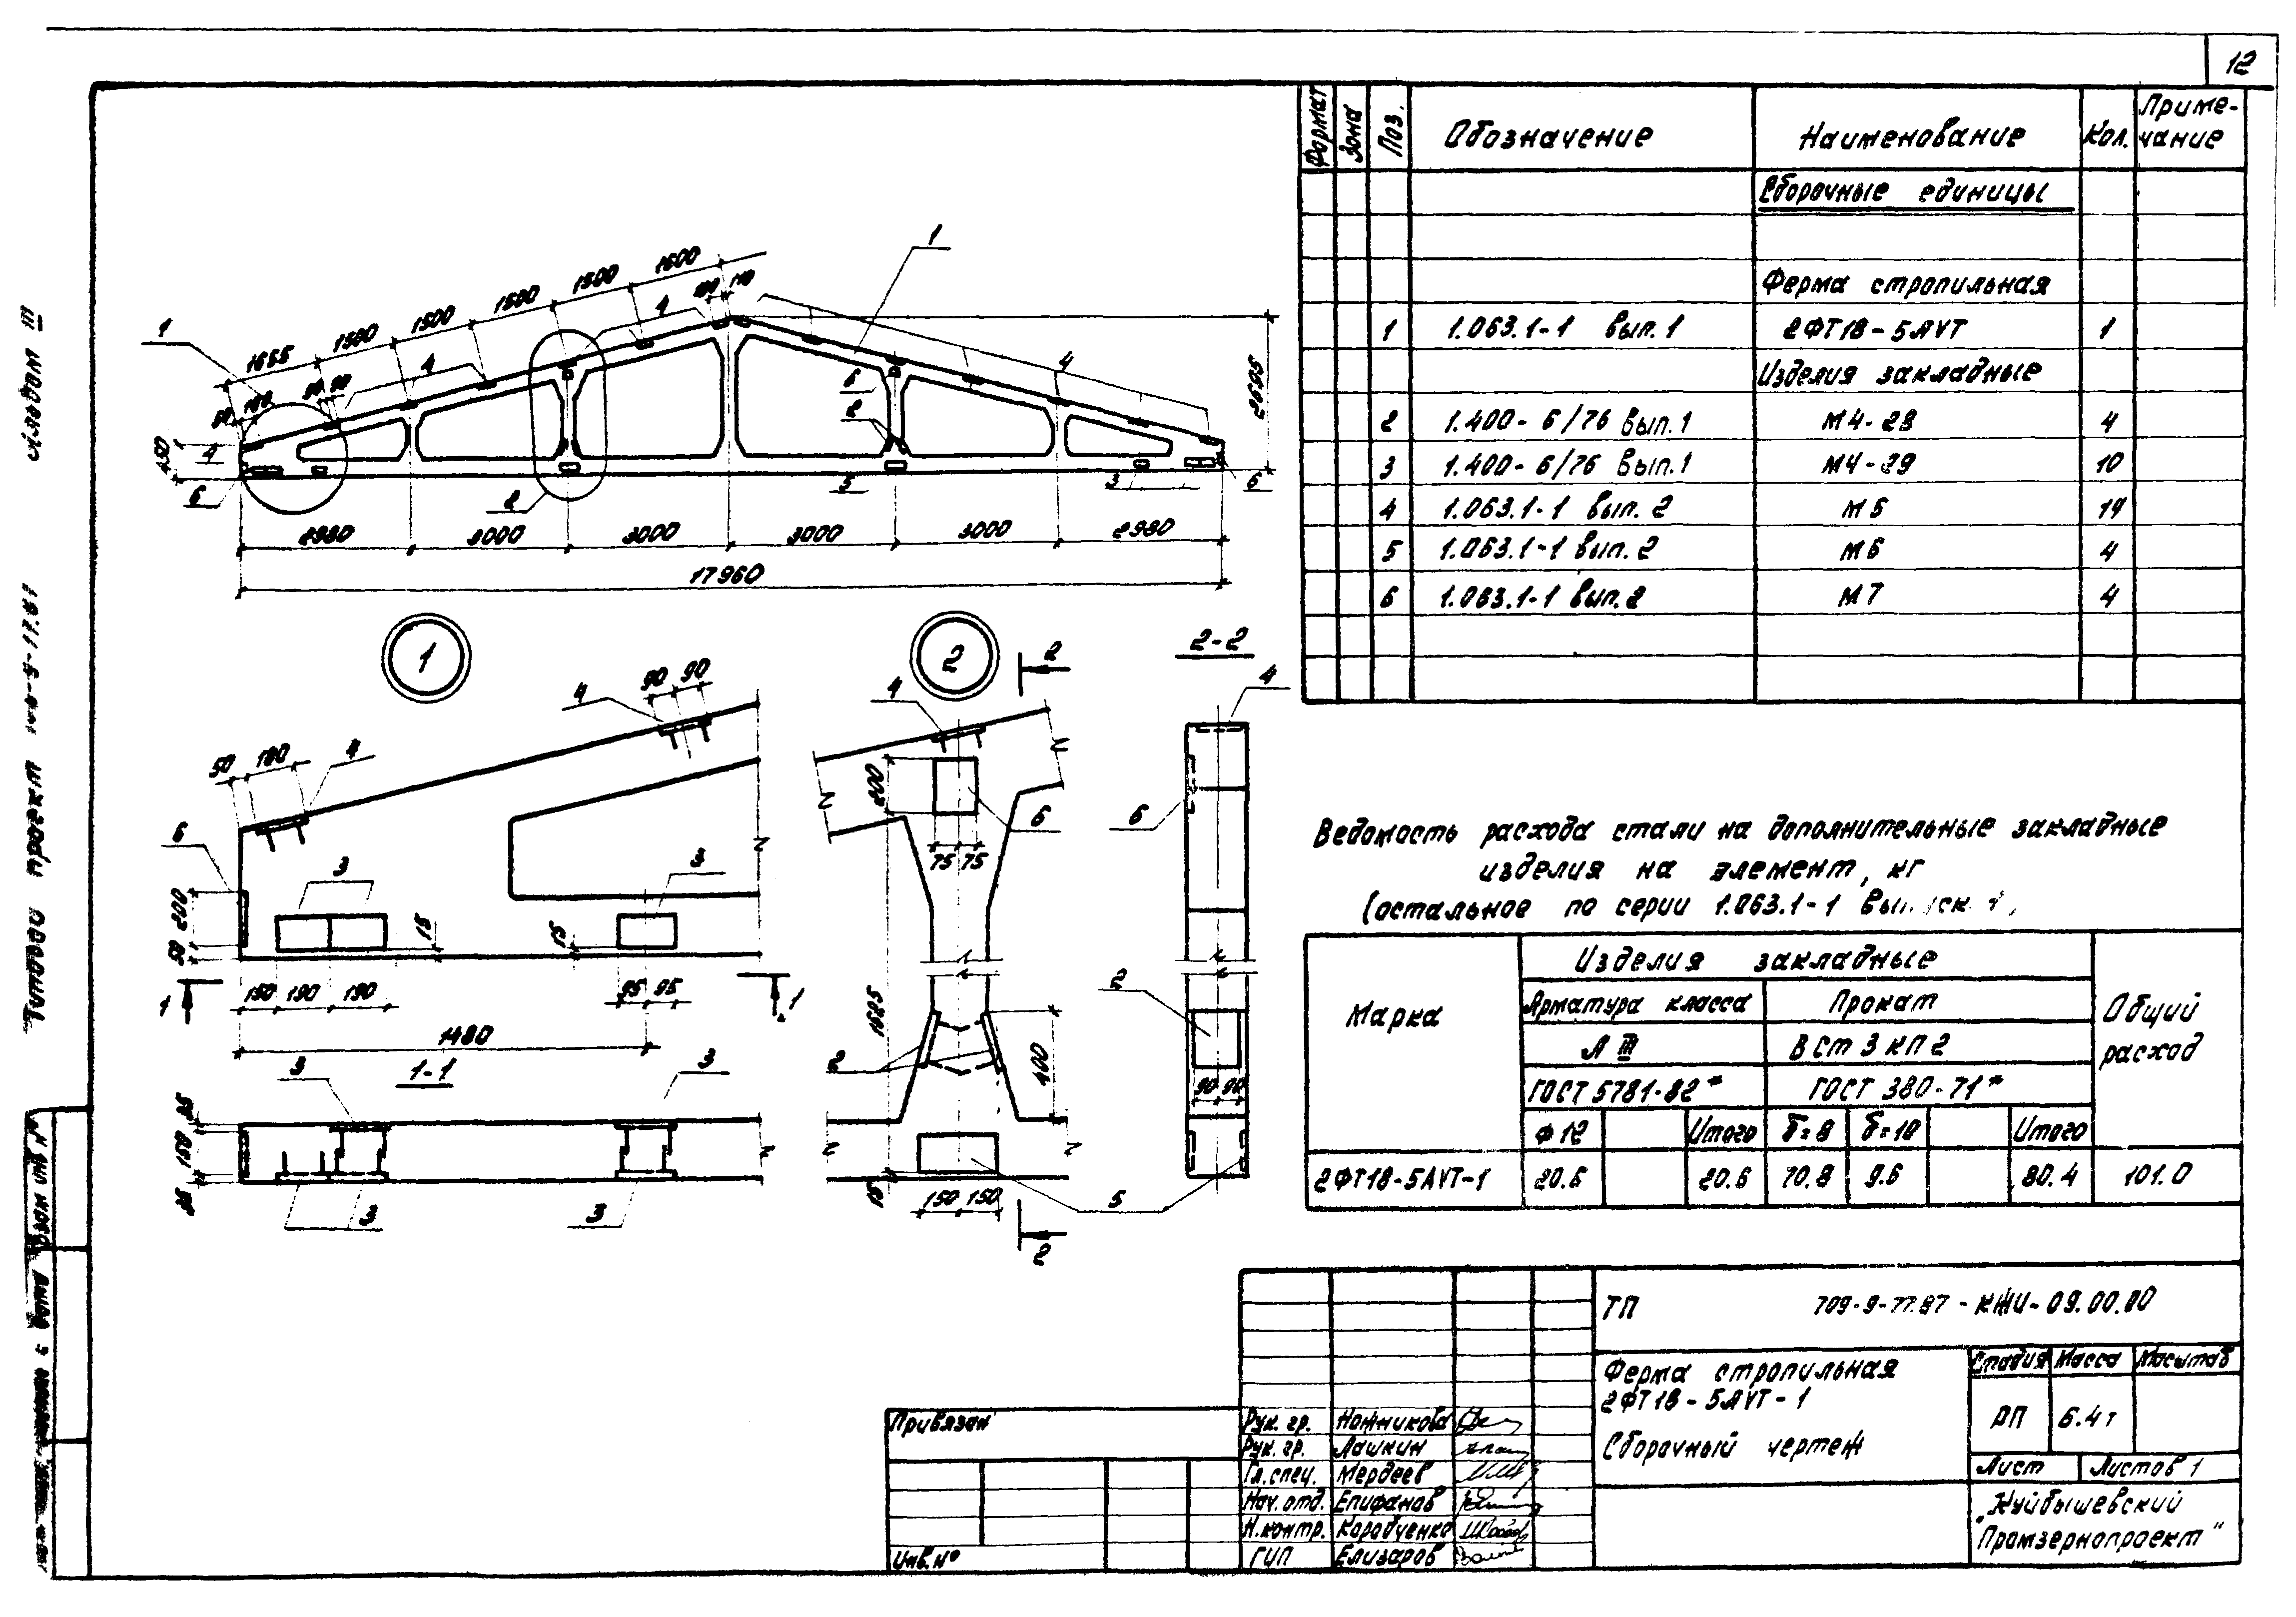 12
Формат Зона Поз. Обозначение Наименование Кол. Приме-
чание
Сборочные единицы
Ферма стропильная
1 1.063.1-1 вып. 1 2ФТ18-5АVТ 1
Изделия закладные
2 1.400-6/76 вып. 1 М4-28 4
3 1.400-6/76 вып. 1 М4-29 10
4 1.063.1-1 вып. 2 М5 14
5 1.063.1-1 вып. 2 М6 4
6 1.063.1-1 вып. 2 М7 4
1665 1500 1500 1500 1500 1600
1 1 4 4 4
2695
450
4 6 2 6 2 5 3 6
2980 3000 3000 3000 3000 2980
17960
1
4 90 90
50 180 4
6 3 3
200
15 15
150 190 190 95 95
1 1
1480
1-1
3 3
150
3 3
2
2
4
200 6
75 75
1525
2 400
150 150
5
2
2-2
4
6
2
90 90
Ведомость расхода стали на дополнительные закладные
изделия на элемент, кг
(остальное по серии 1.063.1-1
Марка Изделия закладные Общий
расход
Арматура класса Прокат
А III ВСт3кп2
ГОСТ 5781-82* ГОСТ 380-71*
Ф12 Итого δ=8 δ=10 Итого
2ФТ18-5АVТ-1 20.6 20.6 70.8 9.6 80.4 101.0
ТП 709-9-77.87-КЖИ-09.00.00
Ферма стропильная
2ФТ18-5АVТ-1
Сборочный чертеж
Стадия Масса Масштаб
РП 6.4т
Лист Листов 1
„Куйбышевский
Промзернопроект"
Привязан
Инв. №
Рук. гр. Ножникова
Рук. гр. Лашкин
Гл. спец. Мердеев
Нач. отд. Епифанов
Н. контр. Карабченко
ГИП Елизаров
Типовой проект